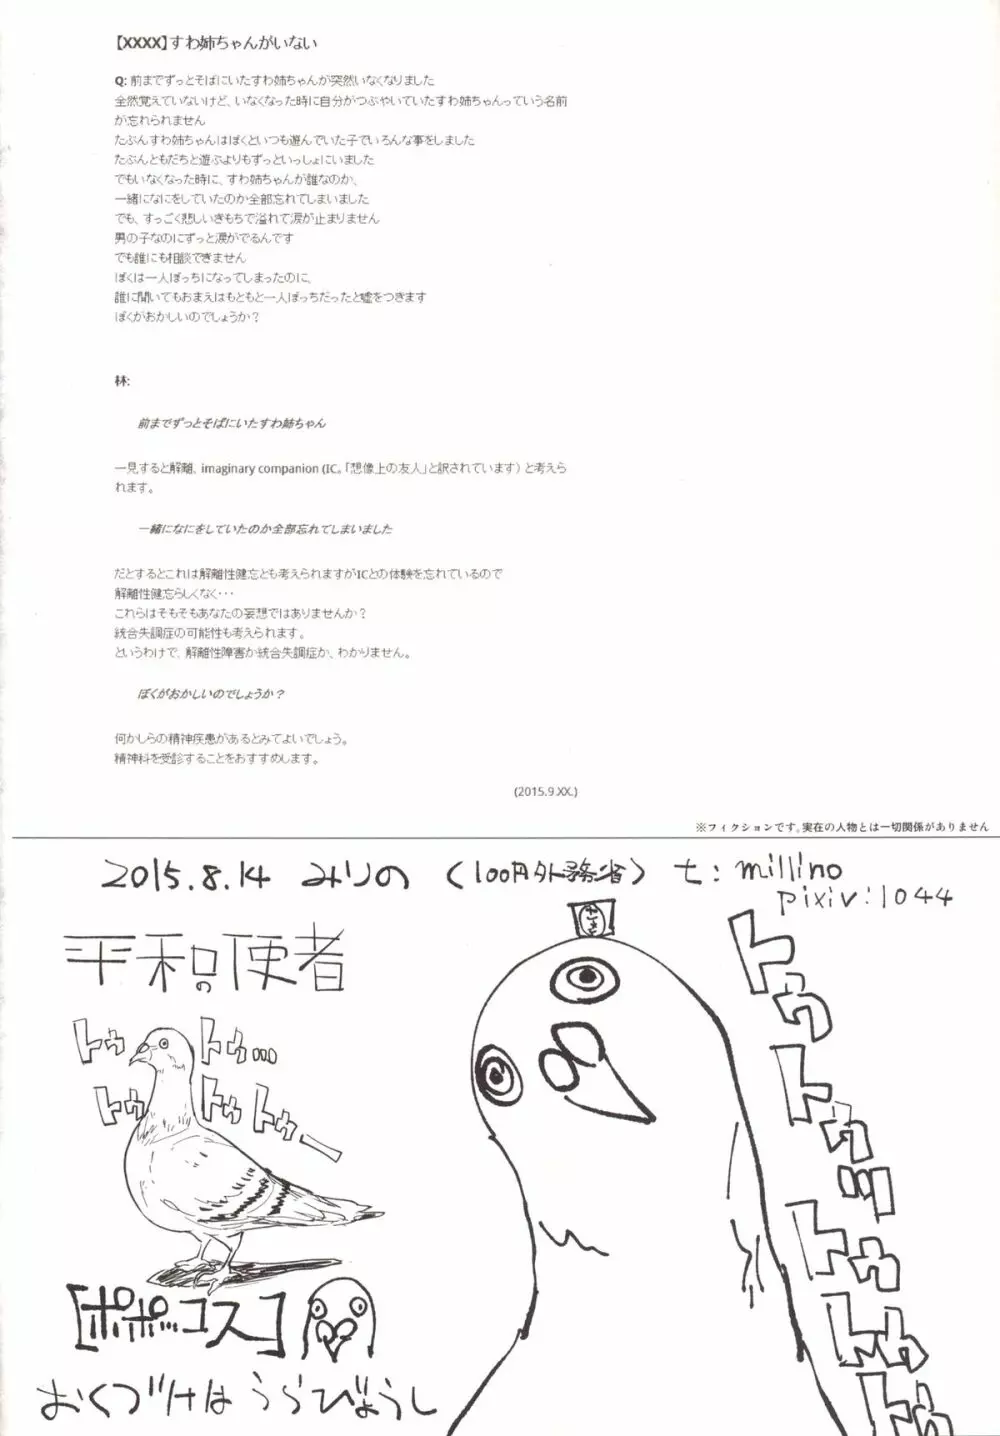 【XXXX】すわ姉ちゃんがいない
Q: 前までずっとそばにいたすわ姉ちゃんが突然いなくなりました
全然覚えていないけど、いなくなった時に自分がつぶやいていたすわ姉ちゃんっていう名前
が忘れられません
たぶんすわ姉ちゃんはぼくといつも遊んでいた子でいろんな事をしました
たぶんともだちと遊ぶよりもずっといっしょにいました
でもいなくなった時に、すわ姉ちゃんが誰なのか、
一緒になにをしていたのか全部忘れてしまいました
でも、すっごく悲しいきもちで溢れて涙が止まりません
男の子なのにずっと涙がでるんです
でも誰にも相談できません
ぼくは一人ぼっちになってしまったのに、
誰に聞いてもおまえはもともと一人ぼっちだったと嘘をつきます
ぼくがおかしいのでしょうか？
林:
前までずっとそばにいたすわ姉ちゃん
一見すると解離、imaginary companion (IC。「想像上の友人」と訳されています) と考えら
れます。
一緒になにをしていたのか全部忘れてしまいました
だとするとこれは解離性健忘とも考えられますがICとの体験を忘れているので
解離性健忘らしくなく・・・
これらはそもそもあなたの妄想ではありませんか？
統合失調症の可能性も考えられます。
というわけで、解離性障害か統合失調症か、わかりません。
ぼくがおかしいのでしょうか？
何かしらの精神疾患があるとみてよいでしょう。
精神科を受診することをおすすめします。
(2015.9.XX.)
※フィクションです。実在の人物とは一切関係がありません
2015.8.14 みりの 〈100円外務省〉 t: millino
pixiv:1044
平和の使者
トゥ トゥ…
トゥ トゥトゥー
トゥ
トゥッ
トゥ
トゥ
トゥ
[ポポッコス]
おくづけはうらびょうし